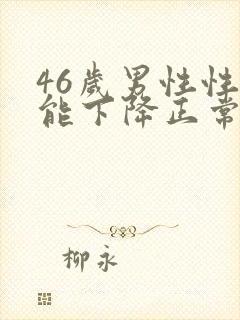 46歲男性性
能下降正常
柳永